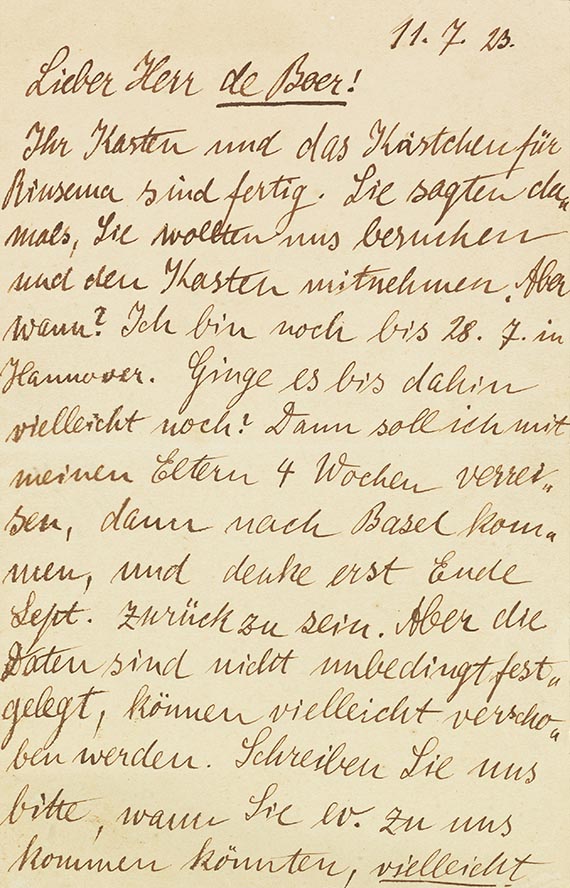 11. 7. 23.
Lieber Herr de Boer!
Ihr Kasten und das Kästchen für
Rinsema sind fertig. Sie sagten da„
mals, Sie wollten uns besuchen
und den Kasten mitnehmen. Aber
wann? Ich bin noch bis 28. 7. in
Hannover. Ginge es bis dahin
vielleicht noch? Dann soll ich mit
meinen Eltern 4 Wochen verrei„
sen, dann nach Basel kom„
men, und denke erst Ende
Sept. zurück zu sein. Aber die
Daten sind nicht unbedingt fest„
gelegt, können vielleicht verscho„
ben werden. Schreiben Sie uns
bitte, wann Sie ev. zu uns
kommen könnten, vielleicht